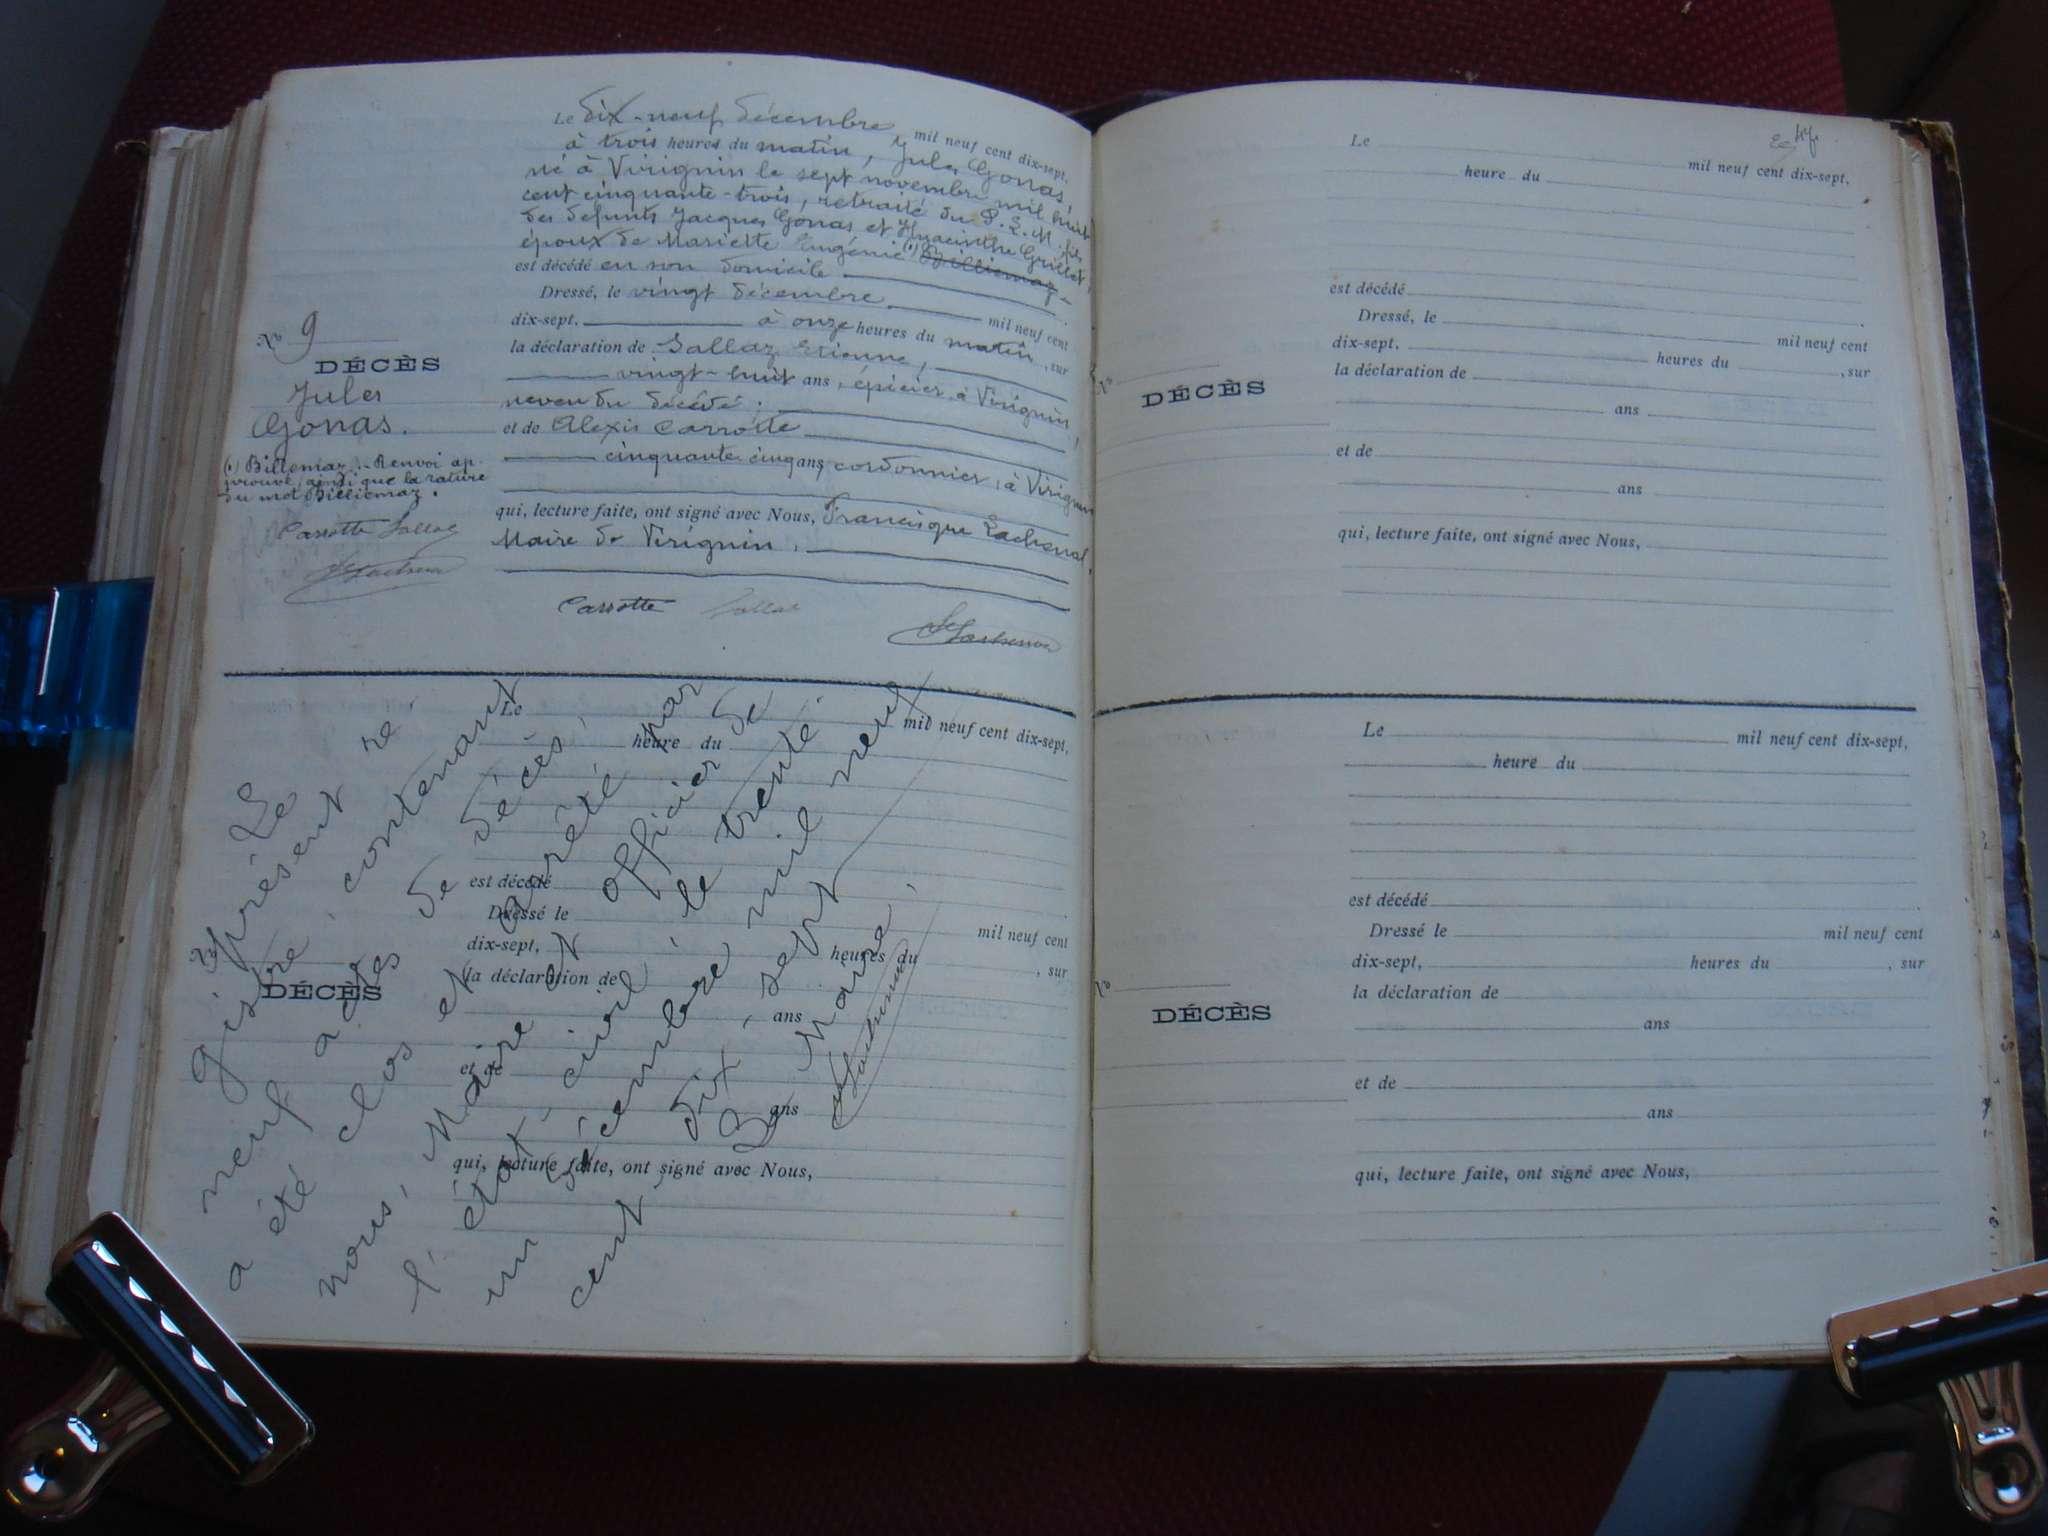 Le dix-neuf décembre, mil neuf cent dix-sept,
à trois heures du matin, Jules Gonas,
né à Virignin le sept novembre mil huit
cent cinquante-trois, retraité du P. L. M. fils
des défunts Jacques Gonas et Hyacinthe Grillet,
époux de Mariette Eugénie (1) Billiemaz
est décédé en son domicile
Dressé, le vingt décembre mil neuf cent
dix-sept, à onze heures du matin, sur
la déclaration de Sallaz Etienne,
vingt-huit ans, épicier à Virignin,
neveu du décédé;
et de Alexis Carrotte
cinquante cinq ans, cordonnier, à Virignin
qui, lecture faite, ont signé avec Nous, Francisque Lachenal,
Maire de Virignin.
Carrotte Sallaz
No 9
DÉCÈS
Jules
Gonas.
(1) Billemaz. Renvoi ap-
prouvé, ainsi que la rature
du mot Billiemaz.
Carrotte Sallaz
Le mil neuf cent dix-sept,
heure du
est décédé
Dressé le mil neuf cent
dix-sept, heures du , sur
la déclaration de
ans
et de
ans
qui, lecture faite, ont signé avec Nous,
No
DÉCÈS
Le
présent re-
gistre, contenant
neuf actes de décès,
a été clos et arrêté par
nous, Maire et officier de
l'état civil, le trente-
un décembre mil neuf
cent dix-sept
Le Maire,
47
Le mil neuf cent dix-sept,
heure du
est décédé
Dressé, le mil neuf cent
dix-sept, heures du , sur
la déclaration de
ans
et de
ans
qui, lecture faite, ont signé avec Nous,
No
DÉCÈS
Le mil neuf cent dix-sept,
heure du
est décédé
Dressé le mil neuf cent
dix-sept, heures du , sur
la déclaration de
ans
et de
ans
qui, lecture faite, ont signé avec Nous,
No
DÉCÈS